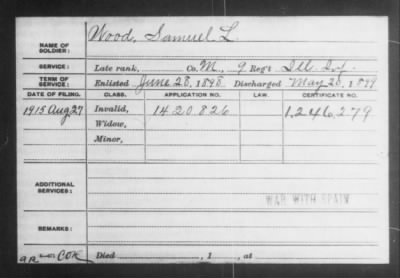 NAME OF SOLDIER: Wood, Samuel L.
SERVICE: Late rank, Co. M, 9 Reg't Ill. Inf.
TERM OF SERVICE: Enlisted June 28, 1898. Discharged May 20, 1899
DATE OF FILING. CLASS. APPLICATION NO. LAW. CERTIFICATE NO.
1915 Aug 27 Invalid, 1420826 1,246,279
Widow,
Minor,
ADDITIONAL SERVICES:
WAR WITH SPAIN
REMARKS:
Died , 1 , at